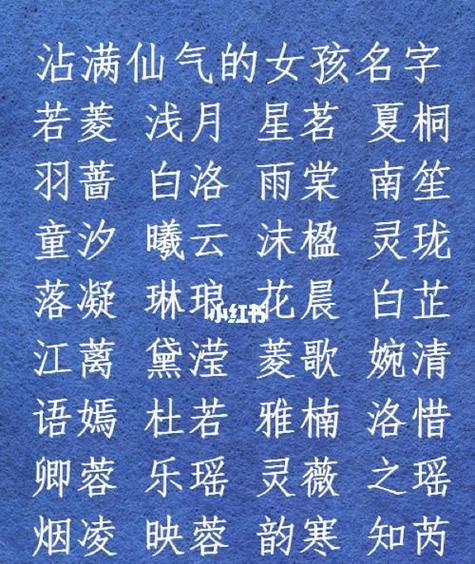 沾满仙气的女孩名字
若菱 浅月 星茗 夏桐
羽蔷 白洛 雨棠 南笙
童汐 曦云 沫楹 灵珑
落凝 琳琅 花晨 白芷
小红书
江蓠 黛滢 菱歌 婉清
语嫣 杜若 雅楠 洛惜
卿蓉 乐瑶 灵薇 之瑶
烟凌 映蓉 韵寒 知芮